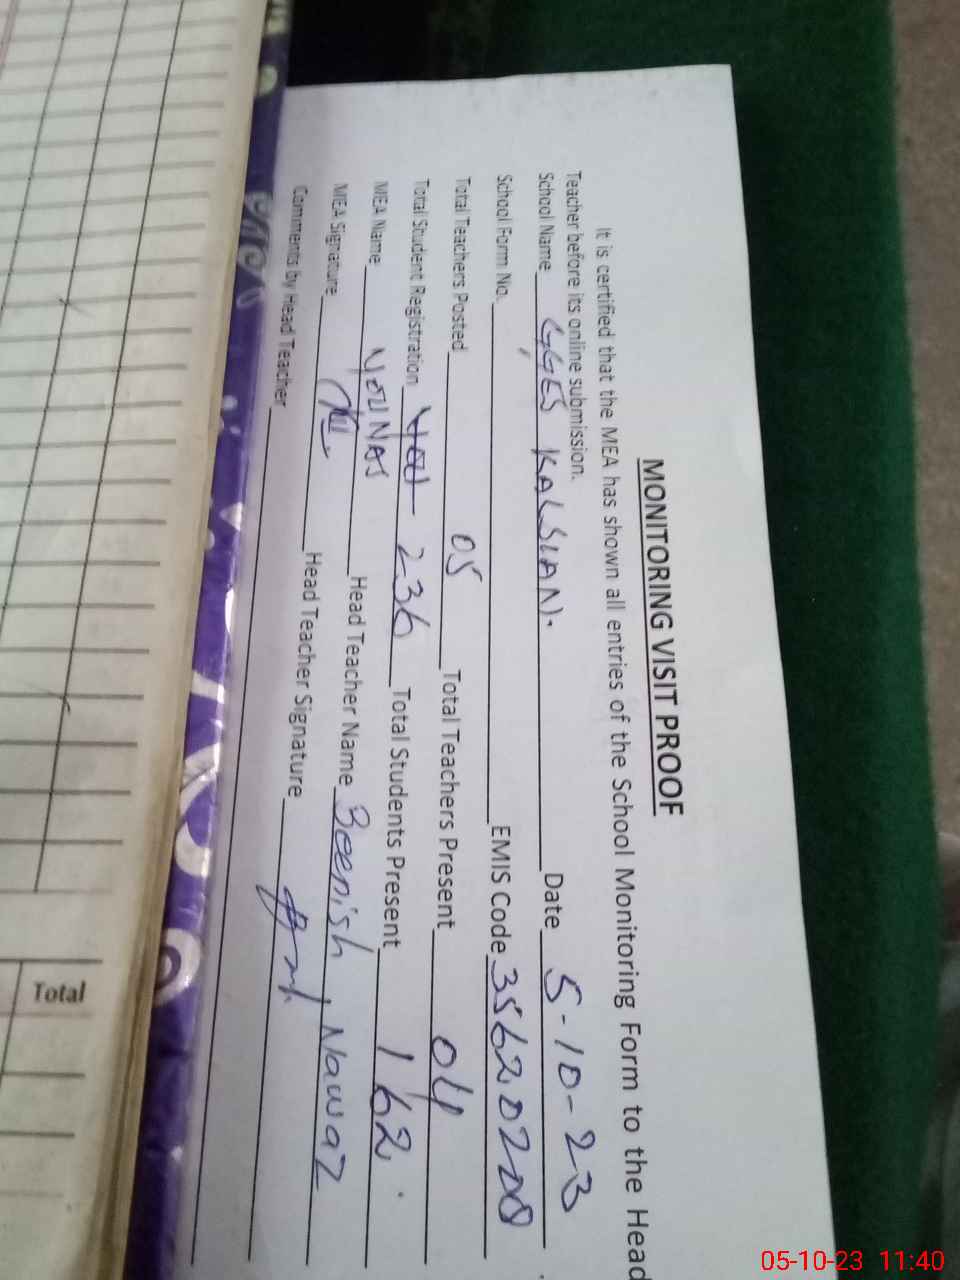 MONITORING VISIT PROOF
It is certified that the MEA has shown all entries of the School Monitoring Form to the Head
Teacher before its online submission.
School Name GGES KALSIAN. Date 5-10-23
School Form No. EMIS Code 35620208
Total Teachers Posted 05 Total Teachers Present 04
Total Student Registration 236 Total Students Present 162
MEA Name YOUNAS Head Teacher Name Beenish Nawaz
MEA Signature Head Teacher Signature
Comments by Head Teacher
Total
05-10-23 11:40